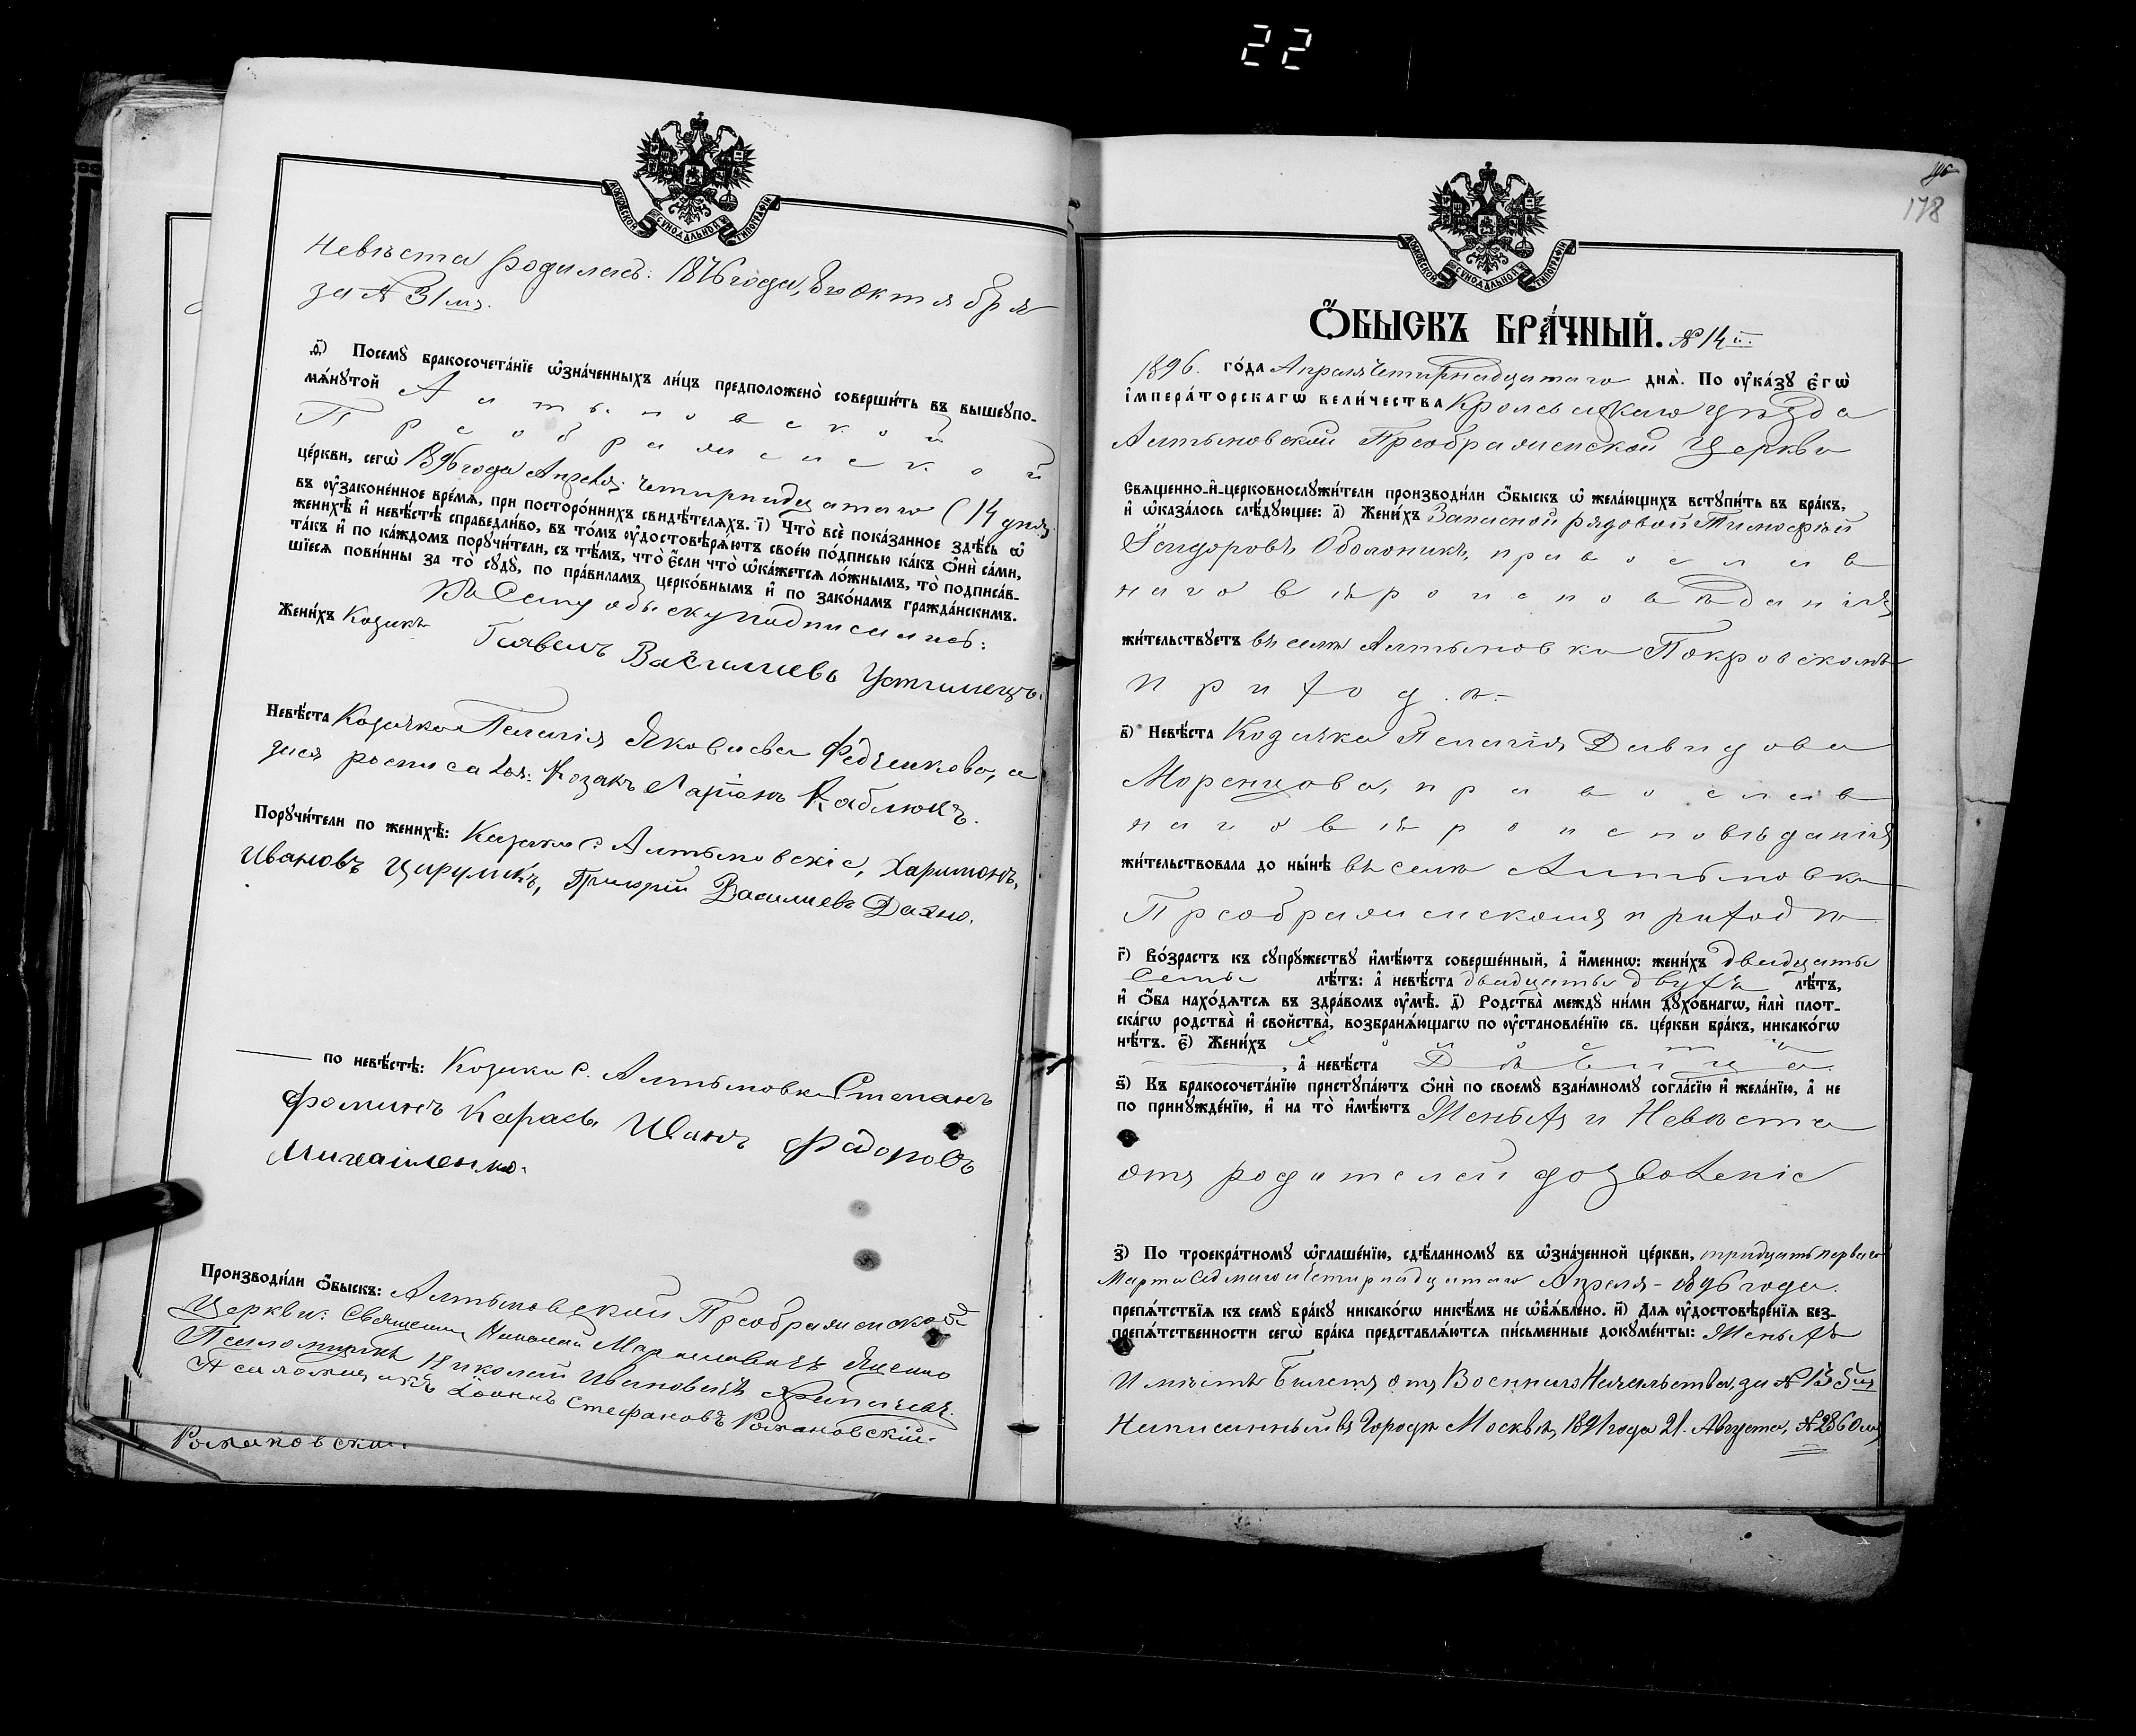 22
МОСКОВСКОЙ СѴНОДАЛЬНОЙ ТИПОГРАФІИ
Невѣста родилась: 1876 года, 8го Октября
за № 31мъ.
д҃і) Посемꙋ̀ бракосочета́нїе ѡ҆зна́ченныхъ ли́цъ предположено̀ соверши́ть въ вышеꙋпо-
мѧ́нꙋтой Алтыновской
Преображенской
це́ркви, сегѡ̀ 1896 года Апреля четирнадцатаго (14 дня)
въ ᲂу҆зако́ненное вре́мѧ, при посторо́ннихъ свидѣ́телѧхъ. і҃) Что̀ всѐ пока́занное здѣ́сь ѡ҆
женихѣ̀ и҆ невѣ́стѣ справедли́во, въ то́мъ ᲂу҆достовѣрѧ́ютъ свое́ю по́дписью ка́къ ѻ҆нѝ са́ми,
та́къ и҆ по ка́ждомъ порꙋчи́тели, съ тѣ́мъ, что̀ є҆́сли что̀ ѡ҆ка́жетсѧ ло́жнымъ, то̀ подписа́в-
шїесѧ пови́нны за то̀ сꙋдꙋ̀, по пра́виламъ церко́внымъ и҆ по зако́намъ гражда́нскимъ.
Къ Сему обыску подписались:
Жени́хъ Козакъ Павелъ Василиевъ Устименъ.
Невѣ́ста Козачка Пелагія Яковлева Федченкова, а
за нея росписался: Козакъ Ларіонъ Каблюкъ.
Порꙋчи́тели по женихѣ̀: Козаки с. Алтыновскіе, Харитонъ
Ивановъ Цирулікъ, Григорій Василиевъ Дахно.
по невѣ́стѣ: Козаки с. Алтыновки Степанъ
Фоминъ Карась, Иванъ Федоровъ
Михайленко.
Производи́ли ѻ҆́быскъ: Алтыновской Преображенской
Церкви: Священникъ Николай Яценко
Псаломщикъ Николай Ивановичъ
Псаломщикъ Іоаннъ Стефановъ Рожановскій.
Рожановскій.
178
МОСКОВСКОЙ СѴНОДАЛЬНОЙ ТИПОГРАФІИ
Ѻ҆́БЫСКЪ БРА́ЧНЫЙ. № 14й
1896. го́да Апреля четирнадцатаго днѧ̀. По ᲂу҆ка́зꙋ є҆гѡ̀
і҆мпера́торскагѡ вели́чества Кролевецкаго уѣзда
Алтыновской Преображенской Церкви
Свѧще́нно-и҆-церковнослꙋжи́тели производи́ли ѻ҆́быскъ ѡ҆ жела́ющихъ встꙋпи́ть въ бра́къ,
и҆ ѡ҆каза́лось слѣ́дꙋющее: а҃) Жени́хъ Запасной рядовой Тимофѣй
Ісидоровъ Оболоникъ, православ
наго вѣроисповѣданія
жи́тельствꙋетъ въ селѣ Алтыновки Покровскомъ
приходѣ
в҃) Невѣ́ста Козачка Пелагія Давидова
Моренцова, православ
наго вѣроисповѣданія
жи́тельствовала до ны́нѣ въ селѣ Алтыновки
Преображенскомъ приходѣ
г҃) Во́зрастъ къ сꙋпрꙋ́жествꙋ и҆мѣ́ютъ соверше́нный, а҆ и҆́меннѡ: жени́хъ двадцати
семи лѣ́тъ: а҆ невѣ́ста двадцати двухъ лѣ́тъ,
и҆ ѻ҆́ба нахо́дѧтсѧ въ здра́вомъ ᲂу҆мѣ̀. д҃) Родства̀ междꙋ̀ ни́ми дꙋхо́внагѡ, и҆лѝ плот-
ска́гѡ родства̀ и҆ свойства̀, возбранѧ́ющагѡ по ᲂу҆становле́нїю св. це́ркви бра́къ, никако́гѡ
нѣ́тъ. є҃) Жени́хъ Холостъ
, а҆ невѣ́ста Дѣвица
ѕ҃) Къ бракосочета́нїю пристꙋпа́ютъ ѻ҆нѝ по своемꙋ̀ взаи́мномꙋ согла́сїю и҆ жела́нїю, а҆ не
по принꙋжде́нїю, и҆ на то̀ и҆мѣ́ютъ Женыхъ и Невѣста
отъ родителей дозволеніе
з҃) По троекра́тномꙋ ѡ҆глаше́нїю, сдѣ́ланномꙋ въ ѡ҆зна́ченной це́ркви, тридцать перваго
Марта Седмаго и четирнадцатаго Апреля - 1896 года.
препѧ́тствїѧ къ семꙋ̀ бра́кꙋ никако́гѡ никѣ́мъ не ѡ҆б̾ѧ́влено. и҃) Для ᲂу҆достовѣре́нїѧ без-
препѧ́тственности сегѡ̀ бра́ка представлѧ́ютсѧ пи́сьменные докꙋме́нты: Женыхъ
Имѣетъ Билетъ отъ Военнаго Начальства, за № 155мъ
Написанный въ Городѣ Москвѣ, 1891 года 21. Августа, № 2860мъ